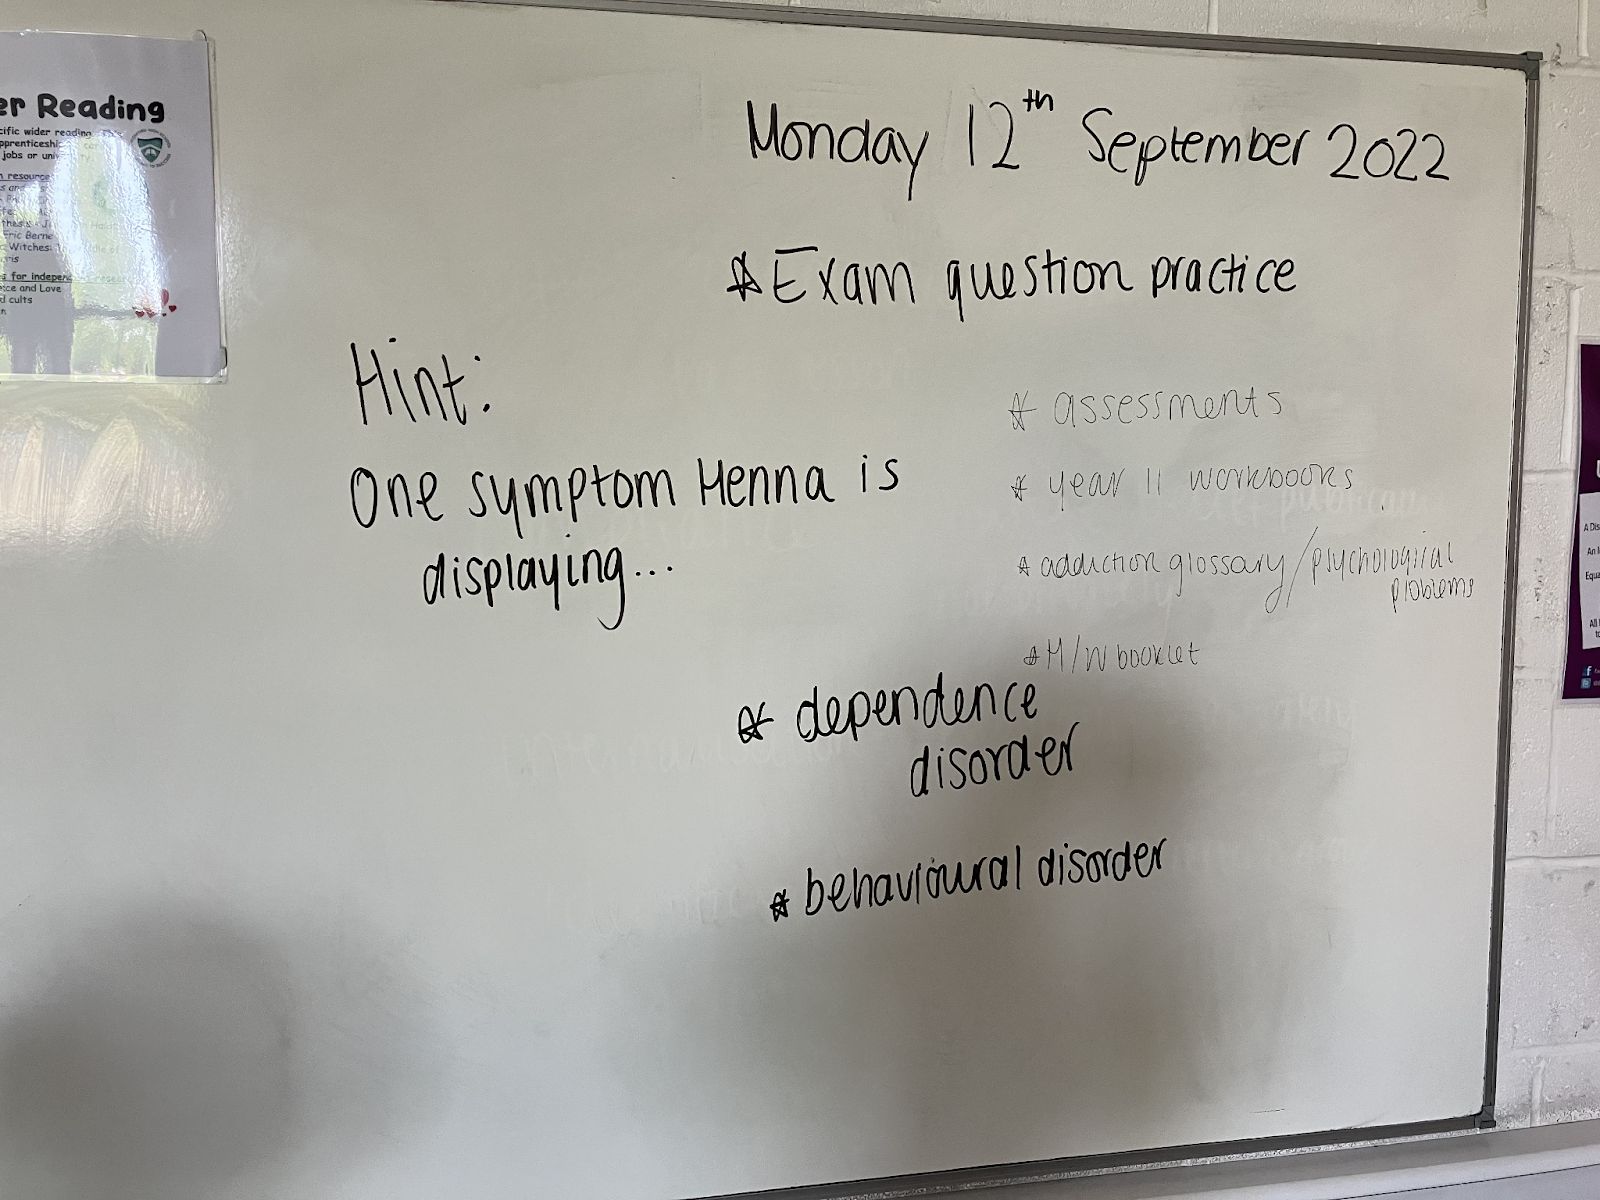 Monday 12th September 2022
* Exam question practice
Hint:
One symptom Henna is
displaying...
* assessments
* year 11 workbooks
* addiction glossary/psychological
problems
* M/W booklet
* dependence
disorder
* behavioural disorder
er Reading
cific wider reading
jobs or
resource
Eric Berne
Witches:
s for indepen
ce and Love
d cults
A Dis
Equa
All
to